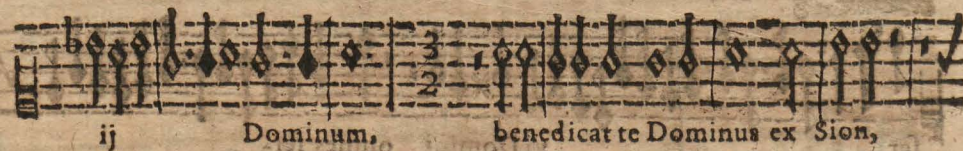 3
2
ij Dominum, benedicat te Dominus ex Sion,